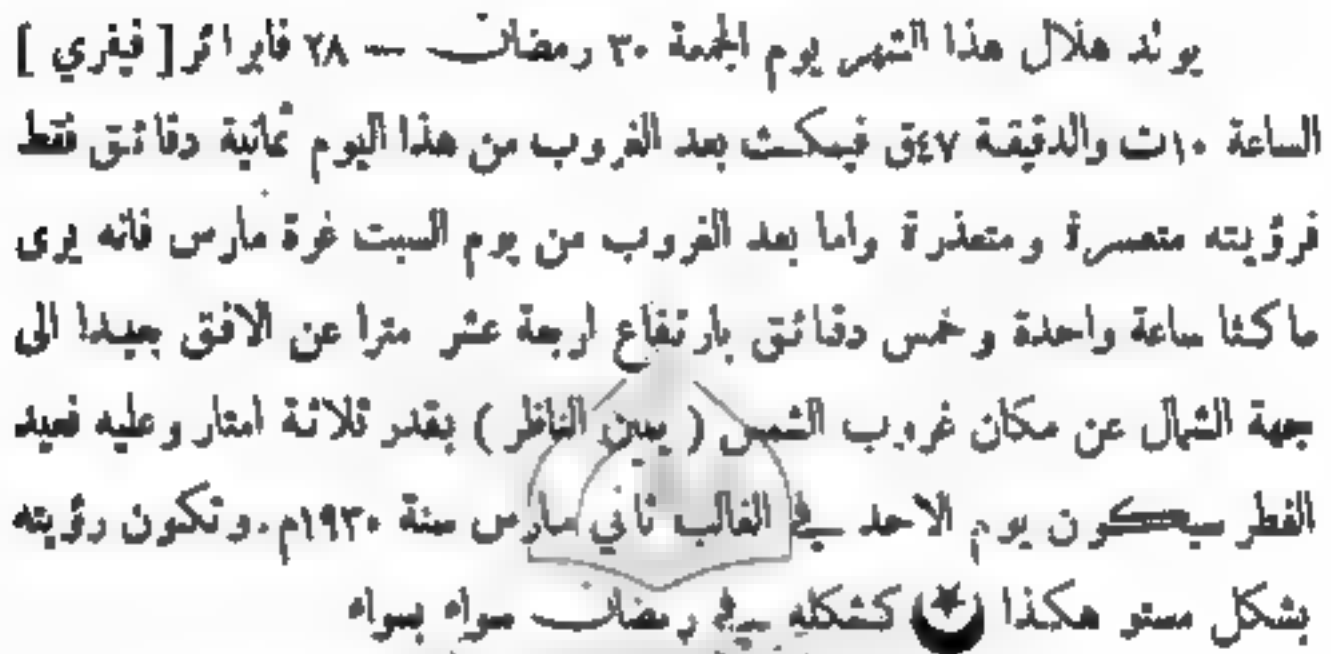 يولد هلال هذا الشهر يوم الجمعة ٣٠ رمضان — ٢٨ فابرائر [ فيفري ]
الساعة ١٠ت والدقيقة ٤٧ق فيمكث بعد الغروب من هذا اليوم ثمانية دقائق فقط
فرؤيته متعسرة ومتعذرة واما بعد الغروب من يوم السبت غرة مارس فانه يرى
ماكثا ساعة واحدة وخمس دقائق بارتفاع اربعة عشر مترا عن الافق جيدا الى
جهة الشمال عن مكان غروب الشمس ( يمين الناظر ) بقدر ثلاثة امتار وعليه فعيد
الفطر سيكون يوم الاحد في الغالب ثاني مارس سنة ١٩٣٠م. وتكون رؤيته
بشكل مستو هكذا كشكله في رمضان سواء بسواء